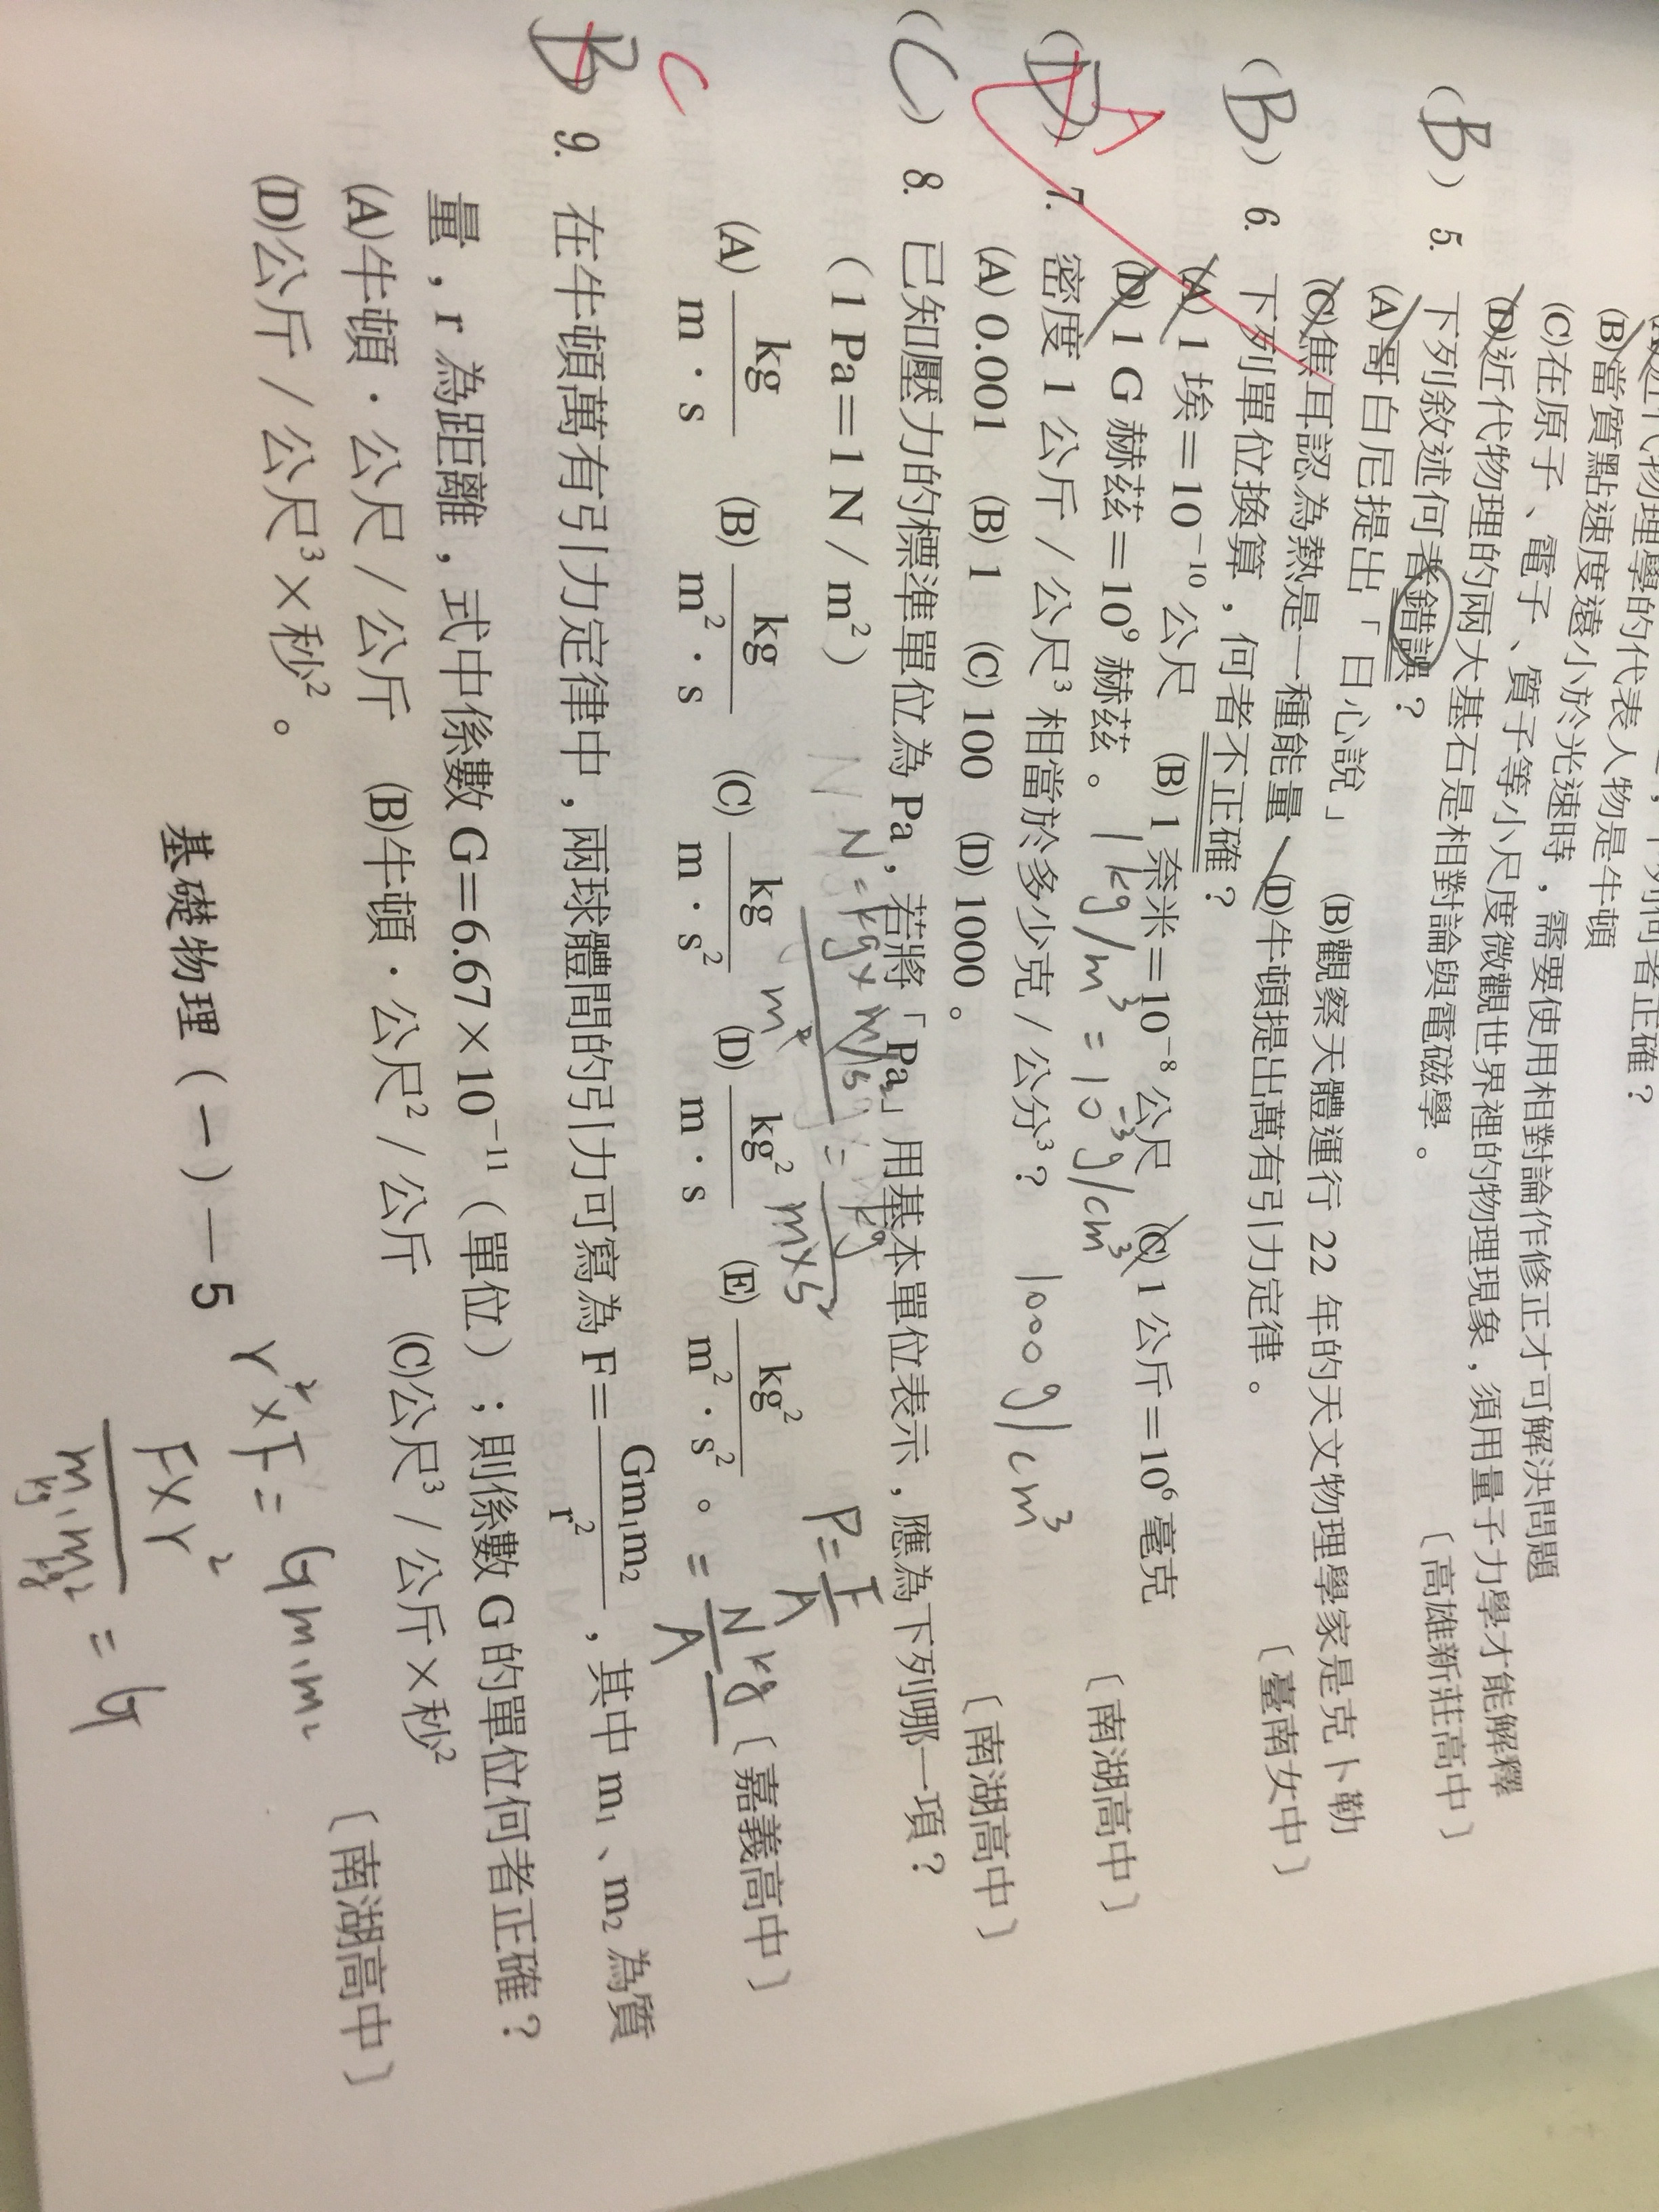 近代物理學的代表人物是
列何者正確？
(B)當質點速度遠小於光速時，需要使用相對論作修正才可解決問題
(C)在原子、電子、質子等小尺度微觀世界裡的物理現象，須用量子力學才能解釋
(D)近代物理的兩大基石是相對論與電磁學。
〔高雄新莊高中〕
(B) 5. 下列敘述何者錯誤？
(A)哥白尼提出「日心說」 (B)觀察天體運行 22 年的天文物理學家是克卜勒
(C)焦耳認為熱是一種能量 (D)牛頓提出萬有引力定律。
〔臺南女中〕
(B) 6. 下列單位換算，何者不正確？
(A) 1 埃＝10⁻¹⁰ 公尺 (B) 1 奈米＝10⁻⁸ 公尺 (C) 1 公斤＝10⁶ 毫克
(D) 1 G 赫茲＝10⁹ 赫茲。
〔南湖高中〕
1kg/m³ = 10⁻³g/cm³
(D) A 7. 密度 1 公斤 / 公尺³ 相當於多少克 / 公分³？
1000g/cm³
(A) 0.001 (B) 1 (C) 100 (D) 1000。
〔南湖高中〕
(C) 8. 已知壓力的標準單位為 Pa，若將「Pa」用基本單位表示，應為下列哪一項？
（1 Pa＝1 N / m²）
P=F/A
(A) kg/m·s (B) kg/m²·s (C) kg/m·s² (D) kg²/m·s (E) kg²/m²·s²。
〔嘉義高中〕
B C 9. 在牛頓萬有引力定律中，兩球體間的引力可寫為 F＝Gm₁m₂/r²，其中 m₁、m₂ 為質
量，r 為距離，式中係數 G＝6.67×10⁻¹¹（單位）；則係數 G 的單位何者正確？
(A)牛頓·公尺 / 公斤 (B)牛頓·公尺² / 公斤 (C)公尺³ / 公斤×秒²
(D)公斤 / 公尺³×秒²。
〔南湖高中〕
基礎物理（一）—5
r²×F = Gm₁m₂
F×r²/m₁m₂ = G